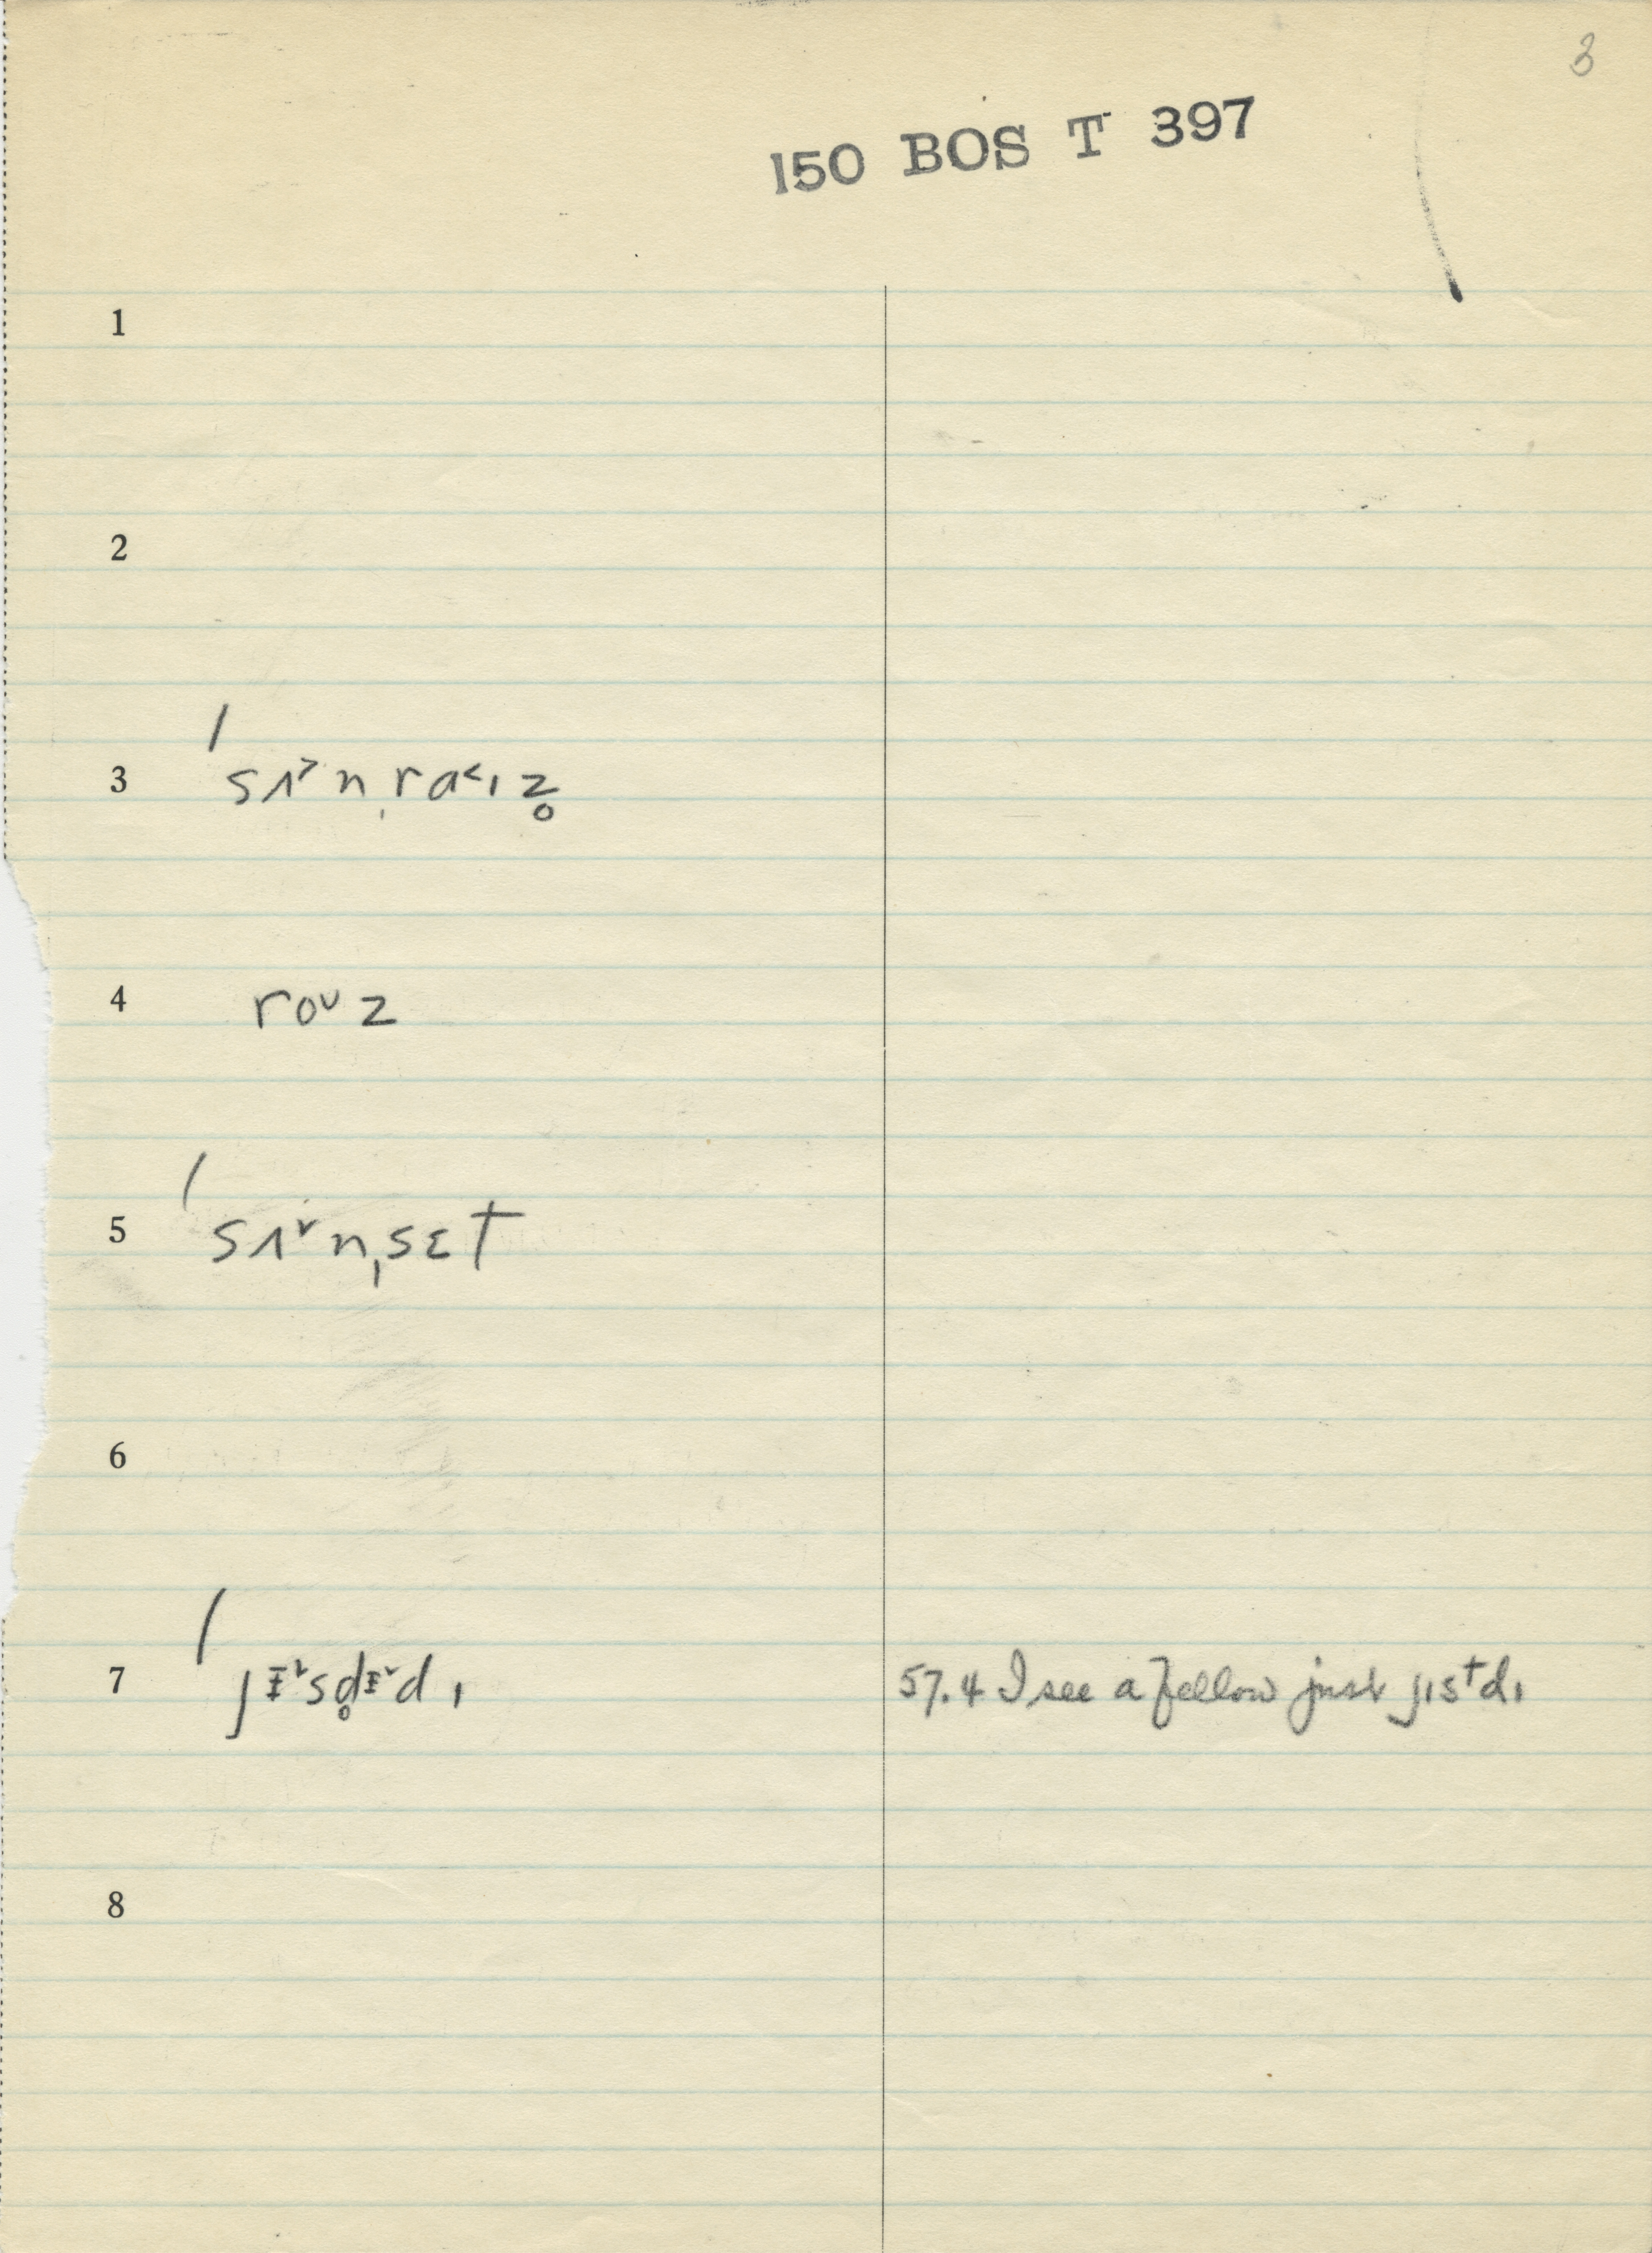 3
150 BOS T 397
1
2
3 ˈsʌ˃nˌrɑ˂ɪz̥
4 roᴜz
5 ˈsʌ˅nˌsɛt
6
7 ˈjᵻ˅sd̥ᵻ˅dɪ 57.4 I see a fellow just jɪstdɪ
8